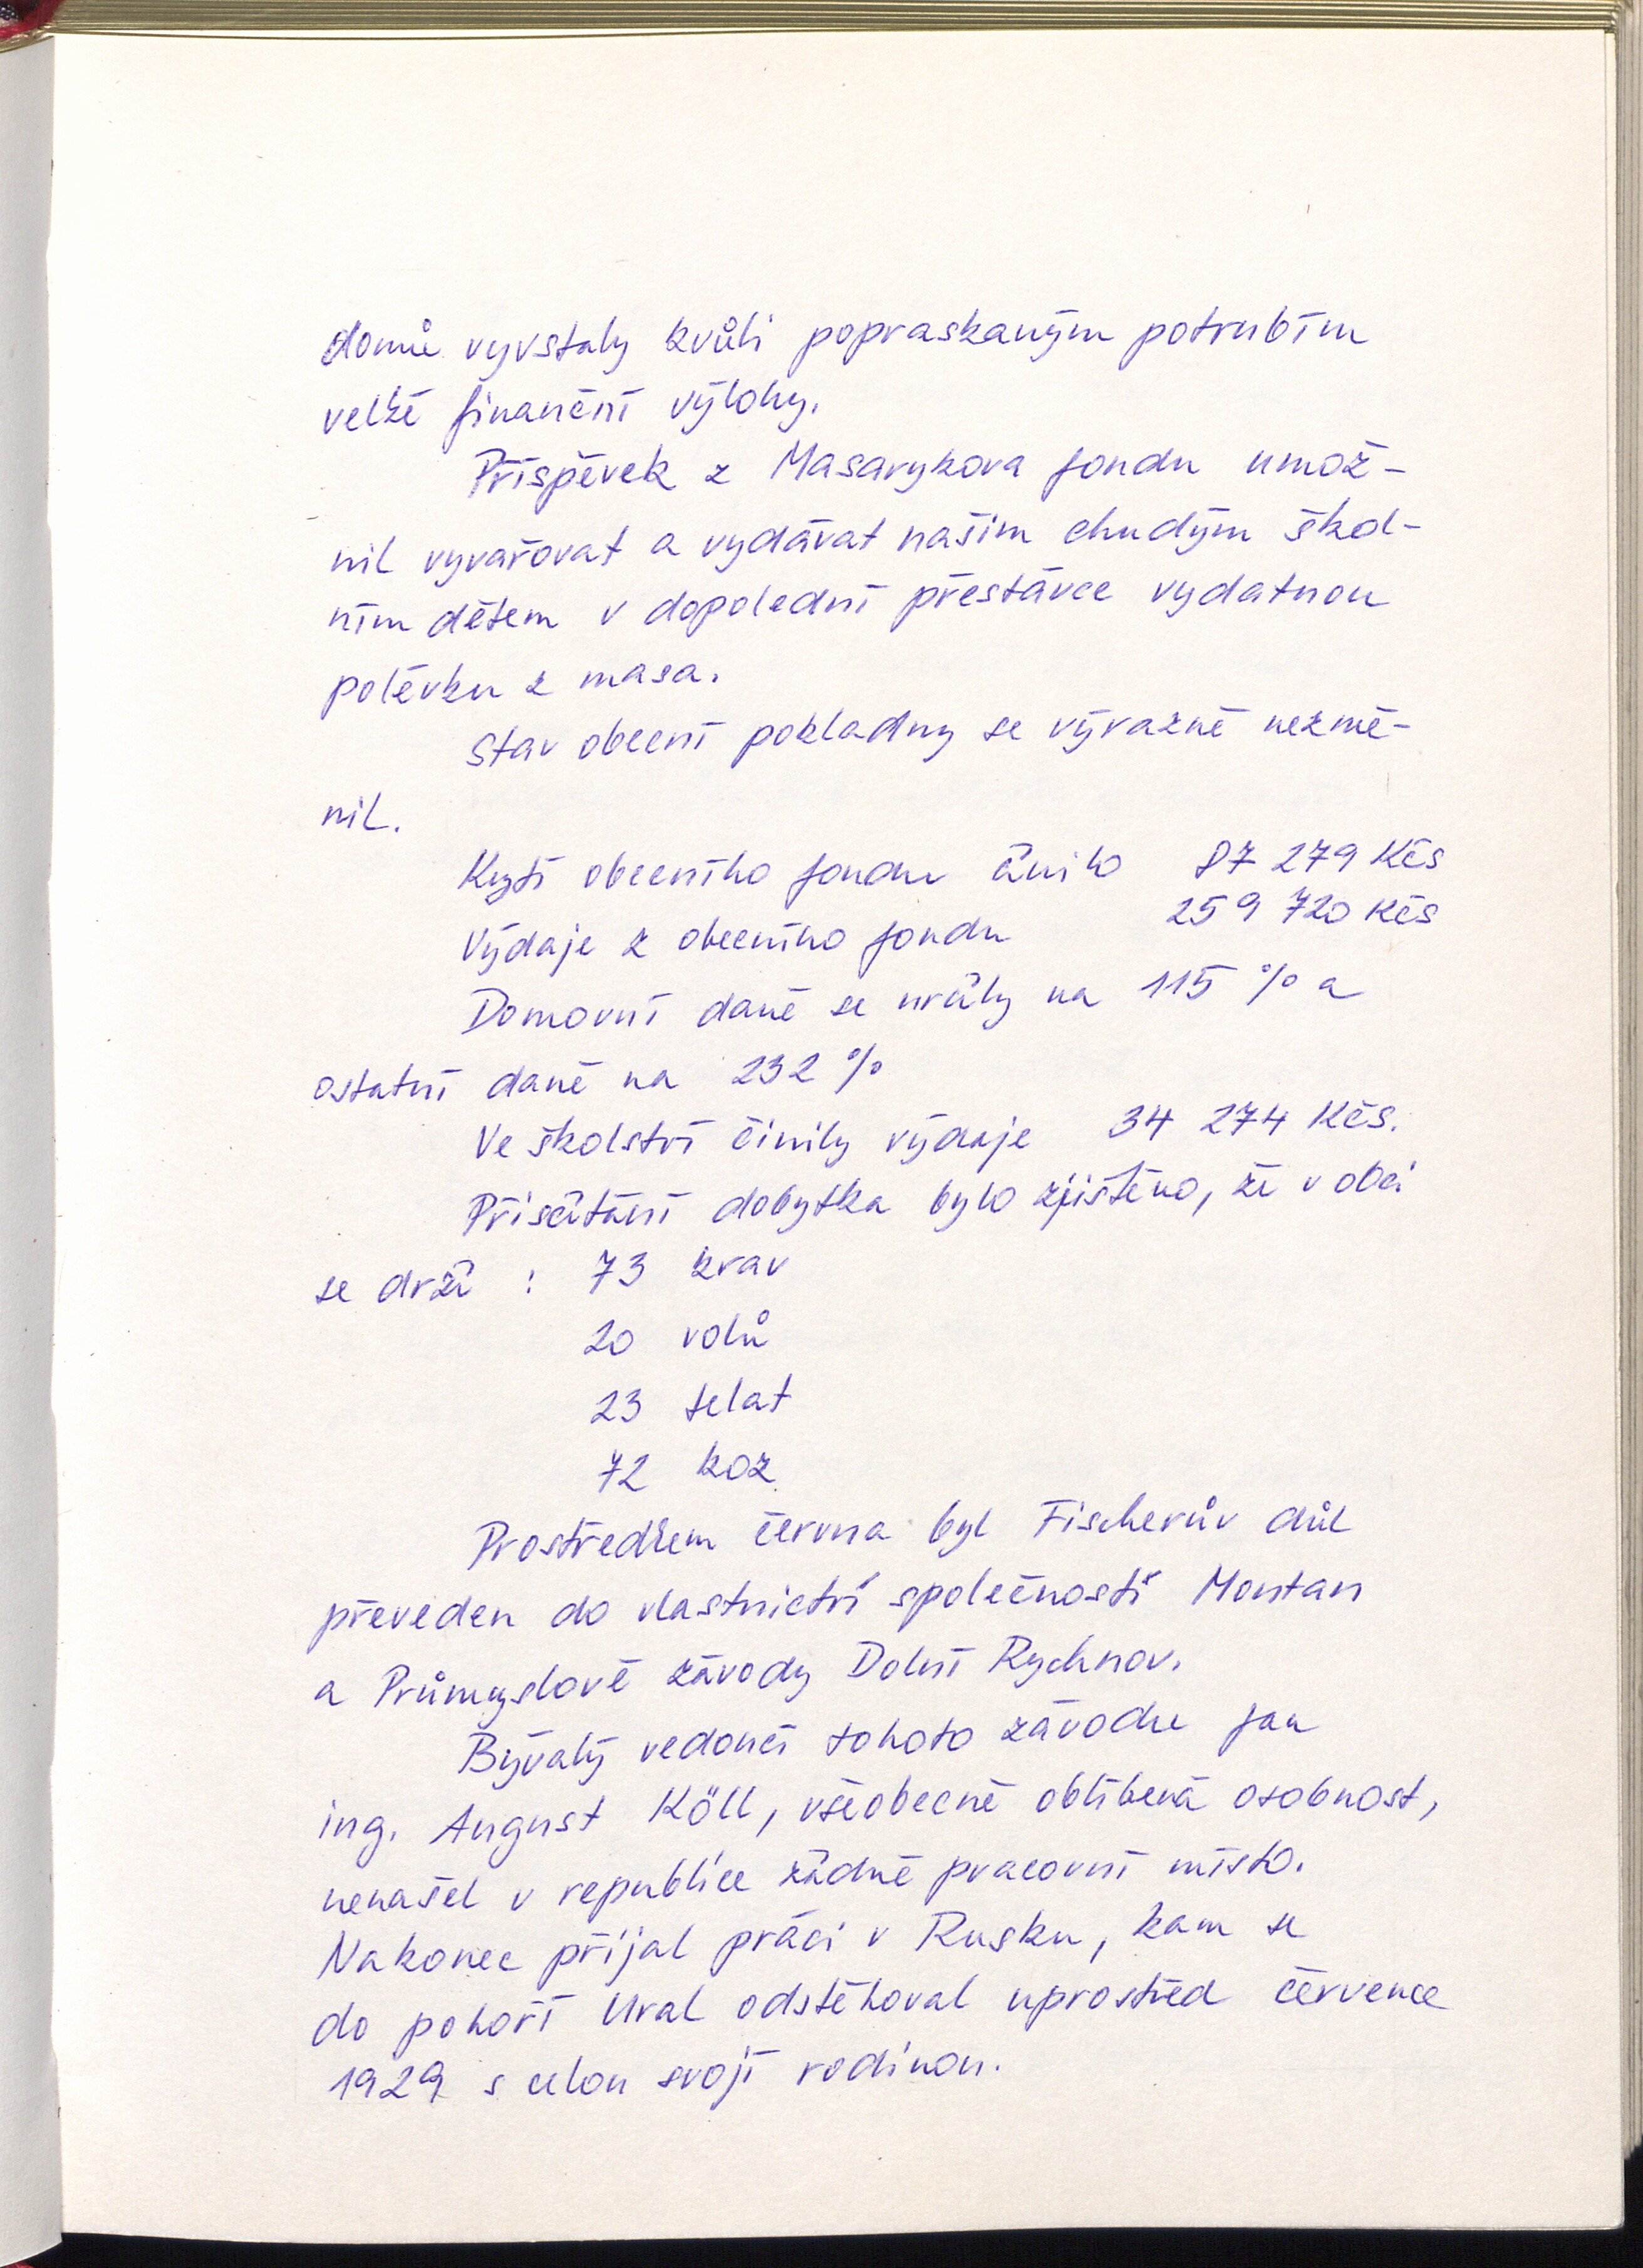 domů vyvstaly kvůli popraskaným potrubím
velké finanční výlohy.
Příspěvek z Masarykova fondu umož-
nil vyvařovat a vydávat našim chudým škol-
ním dětem v dopolední přestávce vydatnou
polévku z masa.
Stav obecní pokladny se výrazně nezmě-
nil.
Krytí obecního fondu činilo 87 279 Kčs
Výdaje z obecního fondu 259 720 Kčs
Domovní daně se určily na 115 % a
ostatní daně na 232 %
Ve školství činily výdaje 34 274 Kčs.
Při sčítání dobytka bylo zjištěno, že v obci
se drží : 73 krav
20 volů
23 telat
72 koz
Prostředkem června byl Fischerův důl
převeden do vlastnictví společnosti Montan
a Průmyslové závody Dolní Rychnov.
Bývalý vedoucí tohoto závodu pan
ing. August Köll, všeobecně oblíbená osobnost,
nenašel v republice žádné pracovní místo.
Nakonec přijal práci v Rusku, kam se
do pohoří Ural odstěhoval uprostřed července
1929 s celou svojí rodinou.